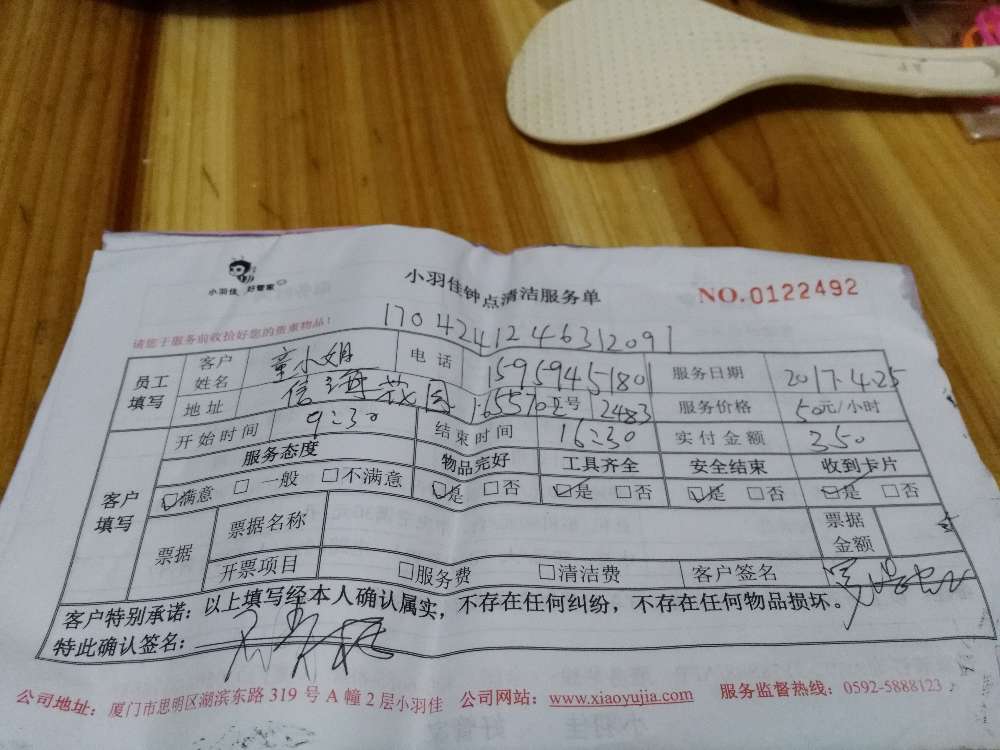 小羽佳 好管家
小羽佳钟点清洁服务单
NO.0122492
请您于服务前收拾好您的贵重物品!
1704241246312091
员工填写 客户姓名 童小姐 电话 15959451801 服务日期 2017.4.25
地址 信海 园 号 2483 服务价格 50元/小时
客户填写 开始时间 9:30 结束时间 16:30 实付金额 350
服务态度 物品完好 工具齐全 安全结束 收到卡片
☑满意 □一般 □不满意 ☑是 □否 ☑是 □否 ☑是 □否 ☑是 □否
票据 票据名称 票据金额
开票项目 □服务费 □清洁费 客户签名
客户特别承诺:以上填写经本人确认属实,不存在任何纠纷,不存在任何物品损坏。
特此确认签名:
公司地址:厦门市思明区湖滨东路 319 号 A 幢 2 层小羽佳 公司网站:www.xiaoyujia.com 服务监督热线:0592-5888123